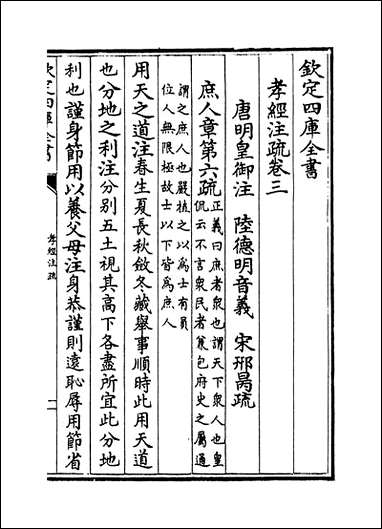 欽定四庫全書
孝經注疏卷三
唐明皇御注 陸德明音義 宋邢昺疏
庶人章第六疏
正義曰庶者衆也謂天下衆人也皇
侃云不言衆民者兼包府史之屬通
謂之庶人也嚴植之以為士有員
位人無限極故士以下皆為庶人
用天之道注春生夏長秋斂冬藏舉事順時此用天道
也分地之利注分别五土視其高下各盡所宜此分地
利也謹身節用以養父母注身恭謹則遠恥辱用節省
孝經注疏